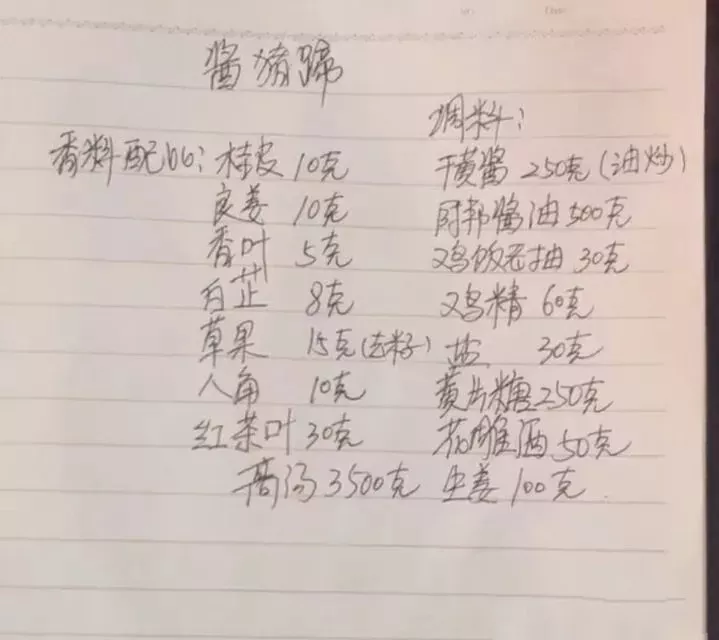 酱猪蹄
调料:
香料配比:桂皮 10克 干黄酱 250克(油炒)
良姜 10克 阿邦酱油 500克
香叶 5克 鸡饭老抽 30克
白芷 8克 鸡精 60克
草果 15克(去籽) 盐 30克
八角 10克 黄片糖 250克
红茶叶 30克 花雕酒 50克
高汤 3500克 生姜 100克